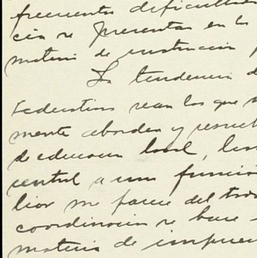 frecuentes dificultades
cia se presentan en los
materia de instrucción p
La tendencia d
Federativos sean los que
mente aborden y resuel
de educación local,
central a una función
lior me parece del todo
coordinación se base
materia de impues